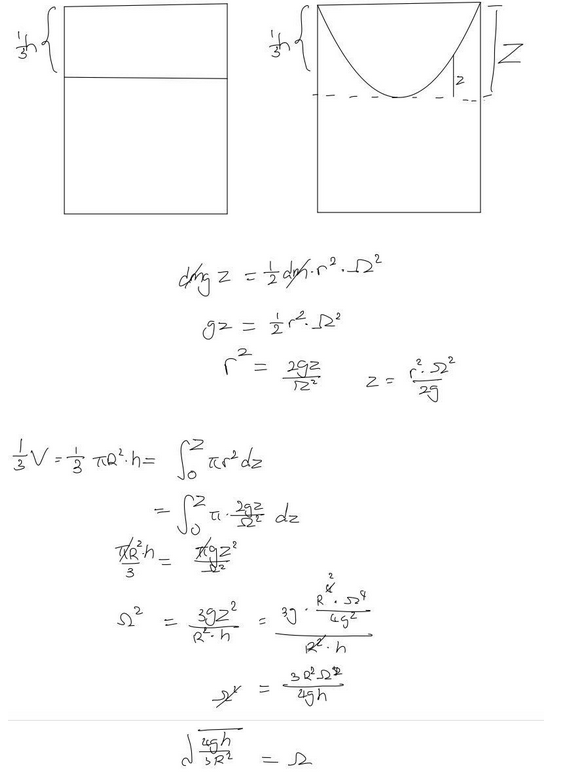 1/3 h { 1/3 h { z Z
dmg z = 1/2 dm · r² · Ω²
gz = 1/2 r² · Ω²
r² = 2gz/Ω² z = r² · Ω²/2g
1/3 V = 1/3 πR² · h = ∫₀^Z πr² dz
= ∫₀^Z π · 2gz/Ω² dz
πR² · h/3 = πgz²/Ω²
Ω² = 3gz²/R² · h = 3g · R⁴ · Ω⁴/4g² / R² · h
Ω² = 3R²Ω²/4gh
√4gh/3R² = Ω